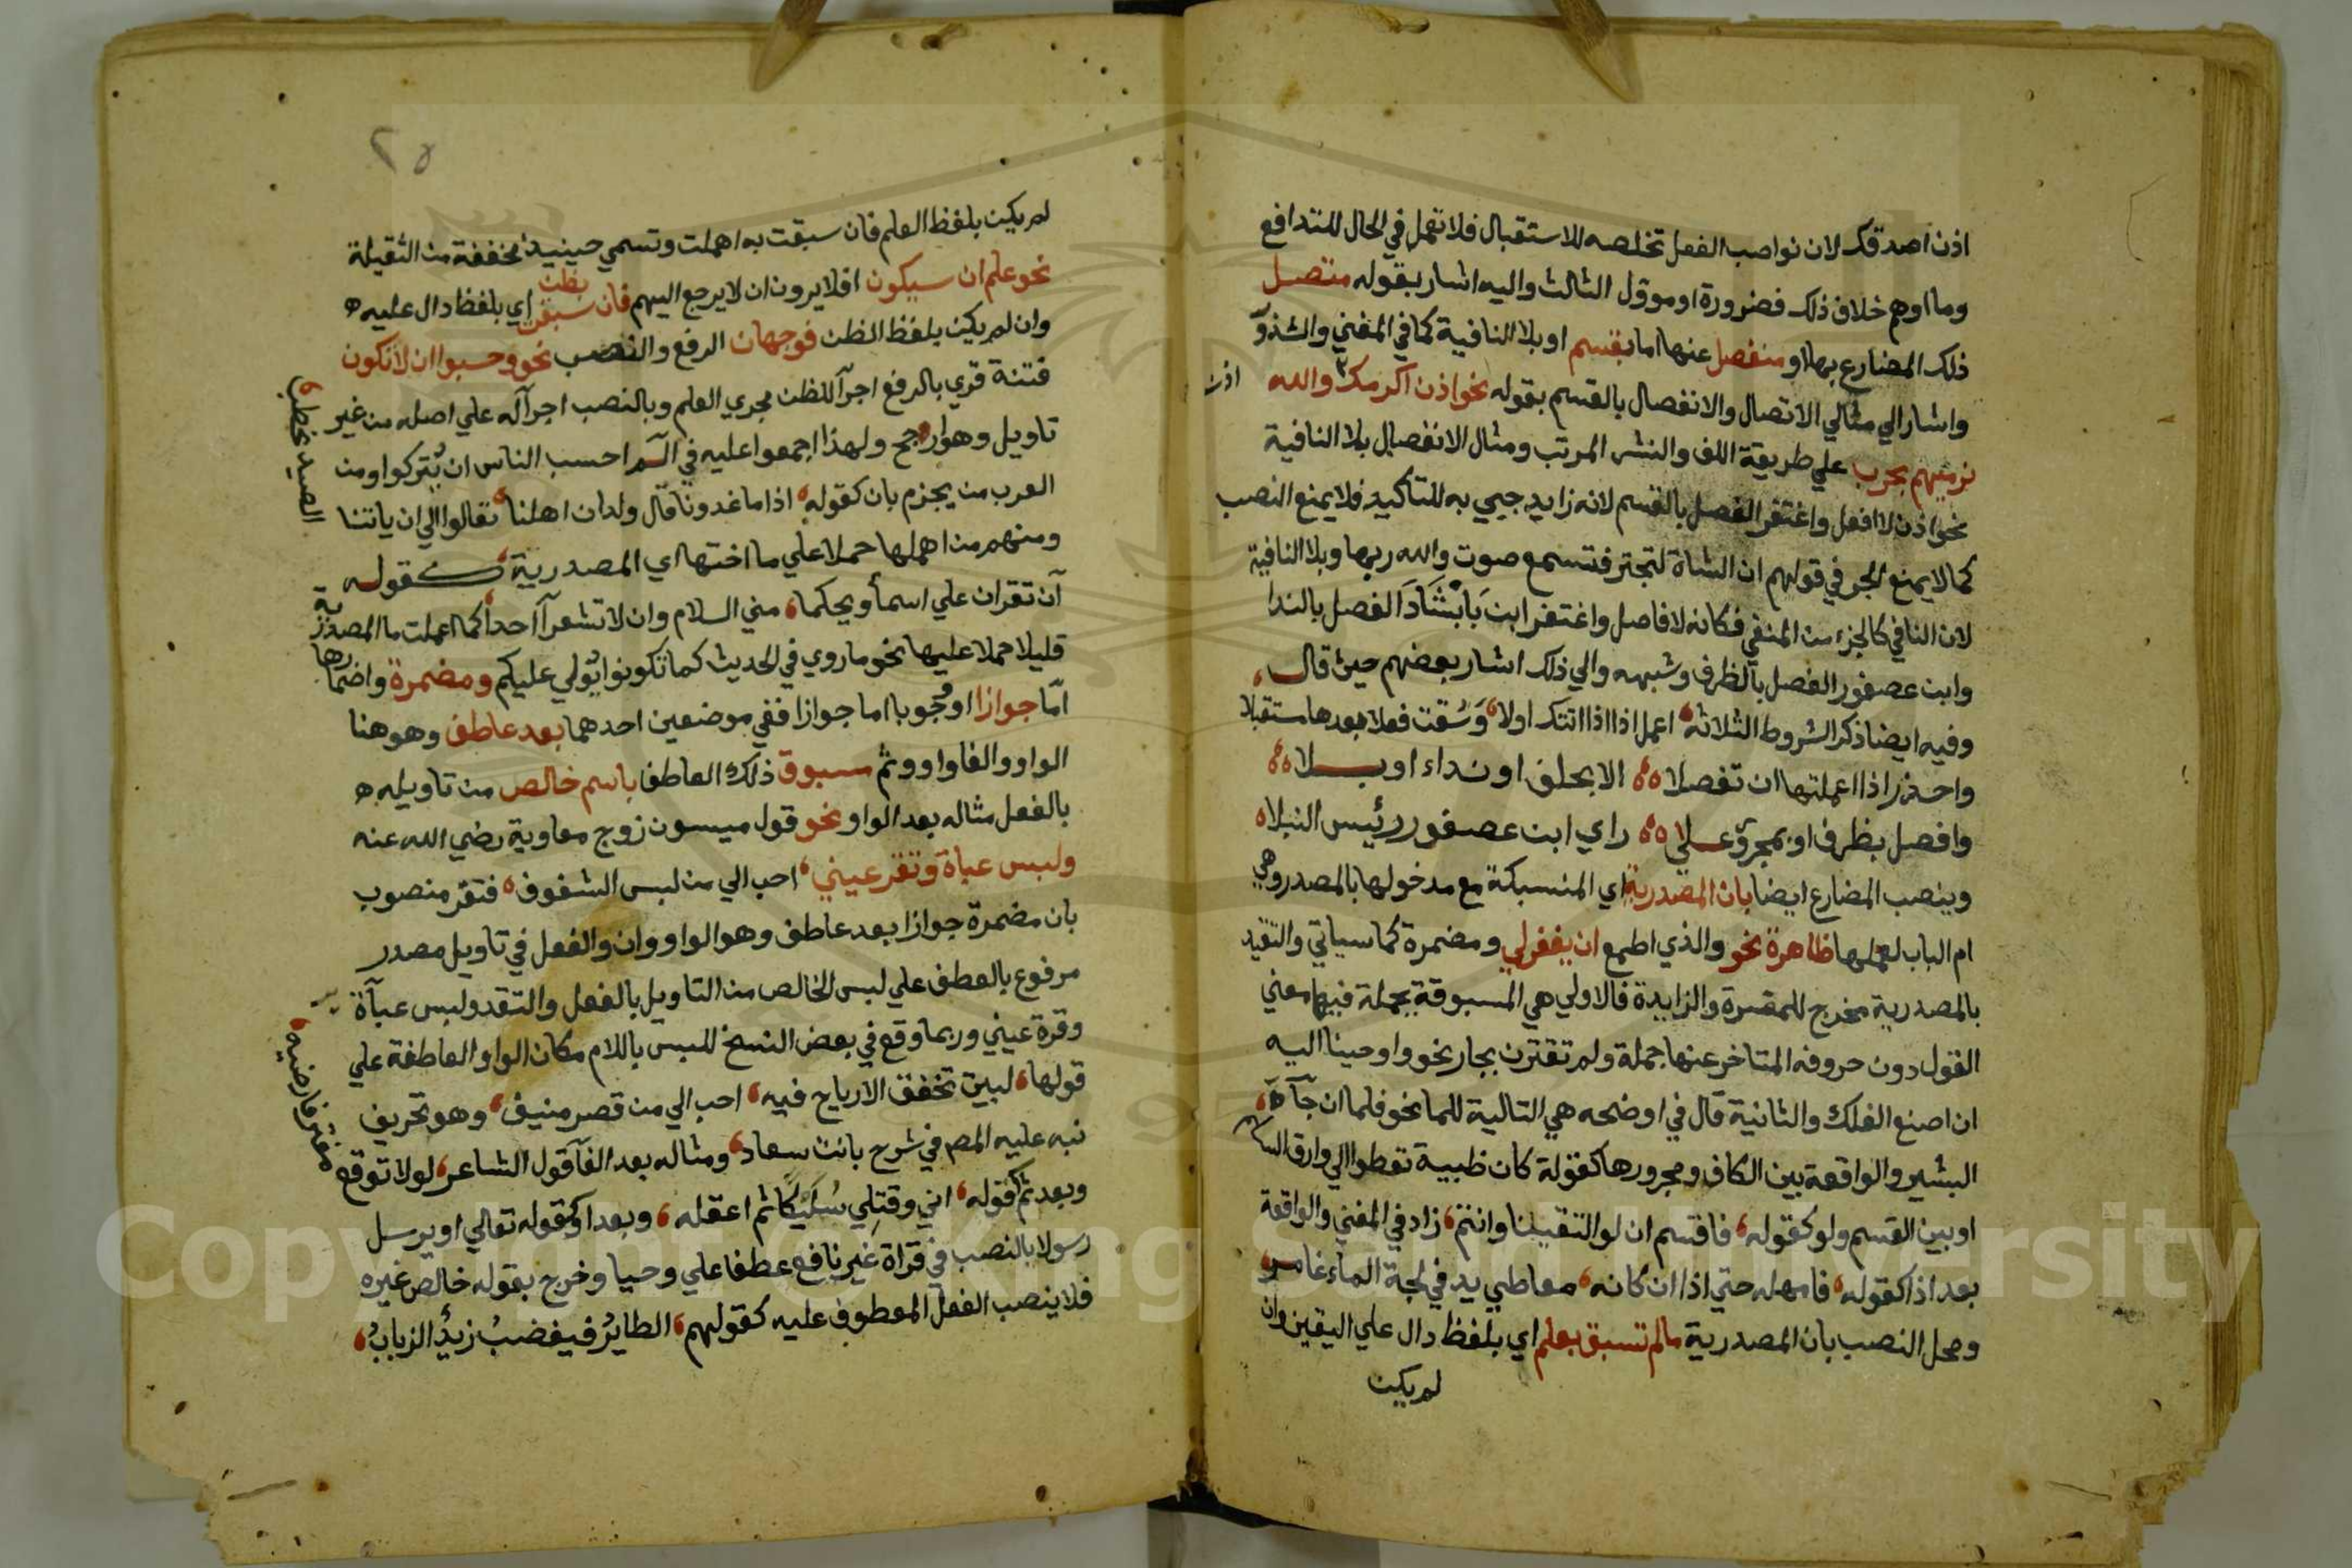 اذن اصدقك لان نواصب الفعل تخلصه للاستقبال فلا تعمل في الحال للتدافع
وما اوهم خلاف ذلك فضرورة او موول الثالث واليه اشار بقوله متصل
ذلك المضارع بها او منفصل عنها اما بقسم او بلا النافية كما في المغني والشذور
واشار الي مثالي الاتصال والانفصال بالقسم بقوله نحو اذن اكرمك والله اذن
نرميهم بحرب علي طريقة اللف والنشر المرتب ومثال الانفصال بلا النافية
نحو اذن لا افعل واغتفر الفصل بالقسم لانه زايد جيي به للتاكيد فلا يمنع النصب
كما لا يمنع الجر في قولهم ان الشاة لتجتر فتسمع صوت والله ربها وبلا النافية
لان النافي كالجزء من المنفي فكانه لا فاصل واغتفر ابن بابشاذ الفصل بالندا
وابن عصفور الفصل بالظرف وشبهه والي ذلك اشار بعضهم حيث قال
وفيه ايضا ذكر الشروط الثلاثة اعمل اذا اذا اتتك اولا وسقت فعلا بعدها مستقبلا
واحذر اذا اعملتها ان تفصلا الا بحلف او نداء او بلا
وافصل بظرف او بمجرور علي راي ابن عصفور رئيس النبلا
وينصب المضارع ايضا بان المصدرية اي المنسبكة مع مدخولها بالمصدر وهي
ام الباب لعملها ظاهرة نحو والذي اطمع ان يغفر لي ومضمرة كما سياتي والتقيد
بالمصدرية مخرج للمفسرة والزايدة فالاولي هي المسبوقة بجملة فيها معني
القول دون حروفه المتاخر عنها جملة ولم تقترن بجار نحو واوحينا اليه
ان اصنع الفلك والثانية قال في اوضحه هي التالية للما نحو فلما ان جآء
البشير والواقعة بين الكاف ومجرورها كقولة كان ظبية تعطوا الي وارق السلم
او بين القسم ولو كقوله فاقسم ان لو التقينا وانتم زاد في المغني والواقعة
بعد اذا كقوله فامهله حتي اذا ان كانه معاطي يد في لجة الماء غامر
ومحل النصب بان المصدرية مالم تسبق بعلم اي بلفظ دال علي اليقين وان
لم يكن
٢٥
لم يكن بلفظ العلم فان سبقت به اهملت وتسمي حينيد مخففة من الثقيلة
نحو علم ان سيكون افلا يرون ان لا يرجع اليهم فان سبقت بظن اي بلفظ دال عليه
وان لم يكن بلفظ الظن فوجهان الرفع والنصب نحو وحسبوا ان لا تكون
فتنة قري بالرفع اجرآ للظن مجري العلم وبالنصب اجرآ له علي اصله من غير
تاويل وهو ارجح ولهذا اجمعوا عليه في الٓم احسب الناس ان يتركوا ومن
العرب من يجزم بان كقوله اذا ما غدونا قال ولدان اهلنا تعالوا الي ان ياتنا
الصيد نحطب
ومنهم من اهملها حملا علي ما اختها اي المصدرية كقوله
آن تقران علي اسما ويحكما مني السلام وان لا تشعرآ احدا كما اعملت ما المصدرية
قليلا حملا عليها نحو ما روي في الحديث كما تكونوا يولي عليكم ومضمرة واضمارها
امّا جوازا او وجوبا اما جوازا ففي موضعين احدهما بعد عاطف وهو هنا
الواو والفا واو وثم مسبوق ذلك العاطف باسم خالص من تاويله
بالفعل مثاله بعد الواو نحو قول ميسون زوج معاوية رضي الله عنه
ولبس عباة وتقر عيني احب الي من لبس الشفوف فتقر منصوب
بان مضمرة جوازا بعد عاطف وهو الواو وان والفعل في تاويل مصدر
مرفوع بالعطف علي لبس الخالص من التاويل بالفعل والتقد ير ولبس عبآة
وقرة عيني وربما وقع في بعض النسخ للبس باللام مكان الواو العاطفة علي
قولها لبيت تخفق الارياح فيه احب الي من قصر منيف وهو تحريف
نبه عليه المص في شرح بانت سعاد ومثاله بعد الفآ قول الشاعر لولا توقع
معتر فارضيه
وبعد ثم كقوله اني وقتلي سليكا ثم اعقله وبعد او كقوله تعالي او يرسل
رسولا بالنصب في قراة غير نافع عطفا علي وحيا وخرج بقوله خالص غيره
فلا ينصب الفعل المعطوف عليه كقولهم الطاير فيغضب زيد الزباب
Copyright © King Saud University